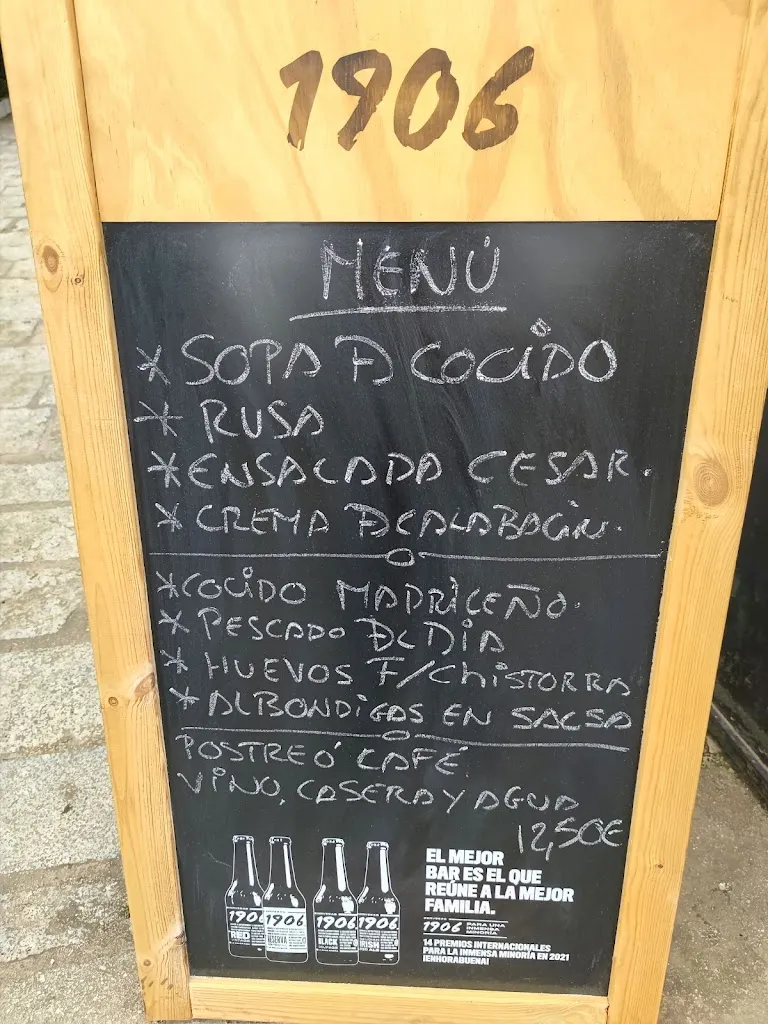 1906
MENÚ
* SOPA D COCIDO
* RUSA
* ENSALADA CESAR.
* CREMA D CALABACIN.
* COCIDO MADRILEÑO.
* PESCADO DL DIA
* HUEVOS F/CHISTORRA
* ALBONDIGAS EN SALSA
POSTRE Ó CAFÉ
VINO, CASERA Y AGUA
12,50€
EL MEJOR
BAR ES EL QUE
REÚNE A LA MEJOR
FAMILIA.
1906 PARA UNA
INMENSA
MINORÍA
14 PREMIOS INTERNACIONALES
PARA LA INMENSA MINORÍA EN 2021
¡ENHORABUENA!
1906 1906 1906 1906
RED RESERVA BLACK IRISH